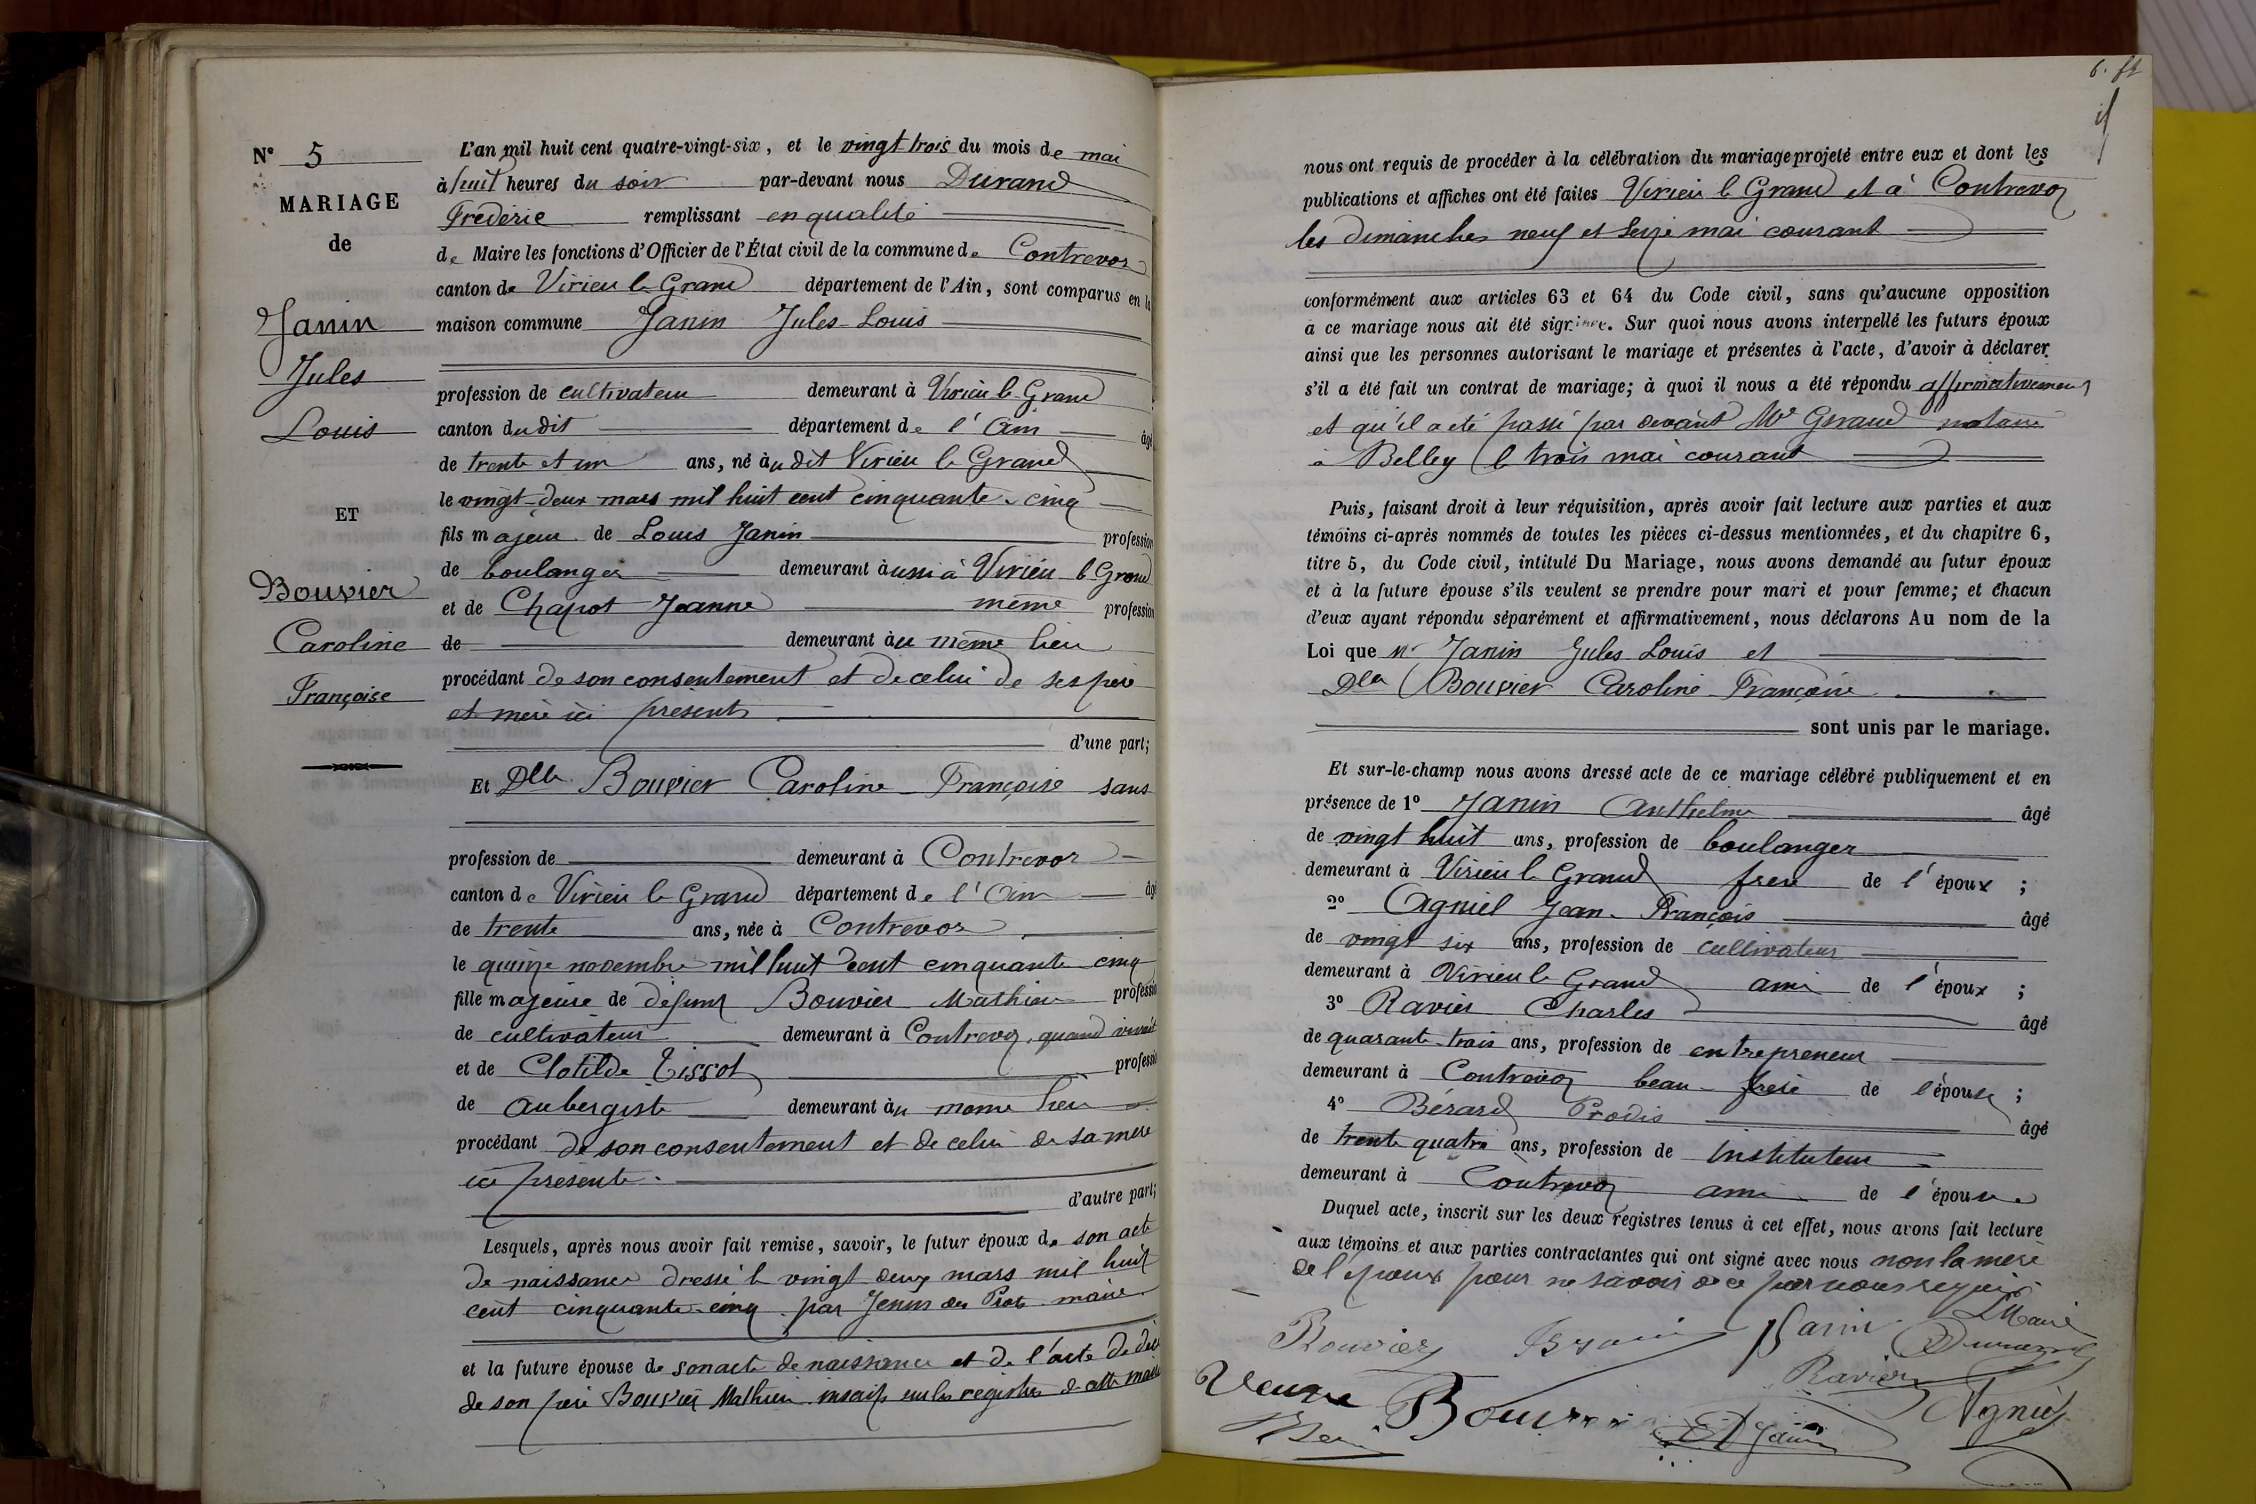 N° 5
MARIAGE
de
Janin
Jules
Louis
ET
Bouvier
Caroline
Françoise
L'an mil huit cent quatre-vingt-six, et le vingt trois du mois de mai
à huit heures du soir par-devant nous Durand
Frédéric remplissant en qualité
de Maire les fonctions d'Officier de l'État civil de la commune de Contrevoz
canton de Virieu le Grand département de l'Ain, sont comparus en la
maison commune Janin Jules Louis
profession de cultivateur demeurant à Virieu le Grand
canton dudit département de l'Ain âgé
de trente et un ans, né àu dit Virieu le Grand
le vingt-deux mars mil huit cent cinquante-cinq
fils majeur de Louis Janin profession
de boulanger demeurant àussi à Virieu le Grand
et de Chapot Jeanne même profession
de demeurant àu même lieu
procédant de son consentement et de celui de ses père
et mère ici présents
d'une part;
Et Dlle Bouvier Caroline Françoise sans
profession de demeurant à Contrevoz
canton de Virieu le Grand département de l'Ain âgé
de trente ans, née à Contrevoz
le quinze novembre mil huit cent cinquante cinq
fille majeure de défunt Bouvier Mathieu profession
de cultivateur demeurant à Contrevoz, quand vivait
et de Clotilde Tissot profession
de aubergiste demeurant àu même lieu
procédant de son consentement et de celui de sa mère
ici présente.
d'autre part;
Lesquels, après nous avoir fait remise, savoir, le futur époux de son acte
de naissance dressé le vingt deux mars mil huit
cent cinquante-cinq par Jenin des Prots maire
et la future épouse de son acte de naissance et de l'acte de décès
de son père Bouvier Mathieu inscrits sur les registres de cette mairie
6. ft
nous ont requis de procéder à la célébration du mariage projeté entre eux et dont les
publications et affiches ont été faites Virieu le Grand et à Contrevoz
les dimanches neuf et seize mai courant
conformément aux articles 63 et 64 du Code civil, sans qu'aucune opposition
à ce mariage nous ait été signifiée. Sur quoi nous avons interpellé les futurs époux
ainsi que les personnes autorisant le mariage et présentes à l'acte, d'avoir à déclarer
s'il a été fait un contrat de mariage; à quoi il nous a été répondu affirmativement
et qu'il a été passé par devant Me notaire
à Belley le trois mai courant
Puis, faisant droit à leur réquisition, après avoir fait lecture aux parties et aux
témoins ci-après nommés de toutes les pièces ci-dessus mentionnées, et du chapitre 6,
titre 5, du Code civil, intitulé Du Mariage, nous avons demandé au futur époux
et à la future épouse s'ils veulent se prendre pour mari et pour femme; et chacun
d'eux ayant répondu séparément et affirmativement, nous déclarons Au nom de la
Loi que Mr Janin Jules Louis et
Dlle Bouvier Caroline Françoise
sont unis par le mariage.
Et sur-le-champ nous avons dressé acte de ce mariage célébré publiquement et en
présence de 1° Janin Anthelme âgé
de vingt huit ans, profession de boulanger
demeurant à Virieu le Grand frère de l'époux ;
2° Agniel Jean-François âgé
de vingt six ans, profession de cultivateur
demeurant à Virieu le Grand ami de l'époux ;
3° Ravier Charles âgé
de quarante-trois ans, profession de entrepreneur
demeurant à Contrevoz beau-frère de l'épouse ;
4° Bérard Prodis âgé
de trente quatre ans, profession de Instituteur
demeurant à Contrevoz ami de l'épouse
Duquel acte, inscrit sur les deux registres tenus à cet effet, nous avons fait lecture
aux témoins et aux parties contractantes qui ont signé avec nous non la mère
de l'époux pour ne savoir de ce par nous requise
Le Maire
Bouvier Janin Durand
Ravier
Veuve Bouvier Agniel
Janin